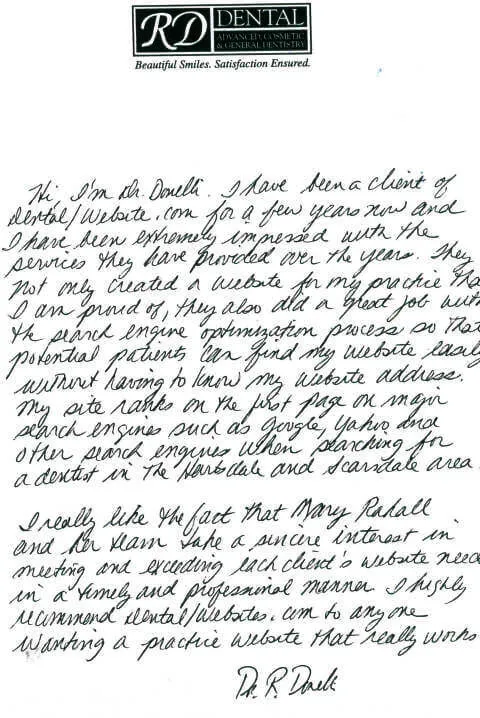 RD DENTAL
ADVANCED COSMETIC
& GENERAL DENTISTRY
Beautiful Smiles. Satisfaction Ensured.
Hi, I'm Dr. Donelli. I have been a client of
Dental/Website.com for a few years now and
I have been extremely impressed with the
services they have provided over the years. They
not only created a website for my practice tha
I am proud of, they also did a great job with
the search engine optimization process so that
potential patients can find my website easily
without having to know my website address.
My site ranks on the first page on major
search engines such as Google, Yahoo and
other search engines when searching for
a dentist in the Hartsdale and Scarsdale area.
I really like the fact that Mary Radall
and her team take a sincere interest in
meeting and exceeding each client's website need
in a timely and professional manner. I highly
recommend Dental/Websites.com to anyone
wanting a practice website that really works
Dr. R. Donelli